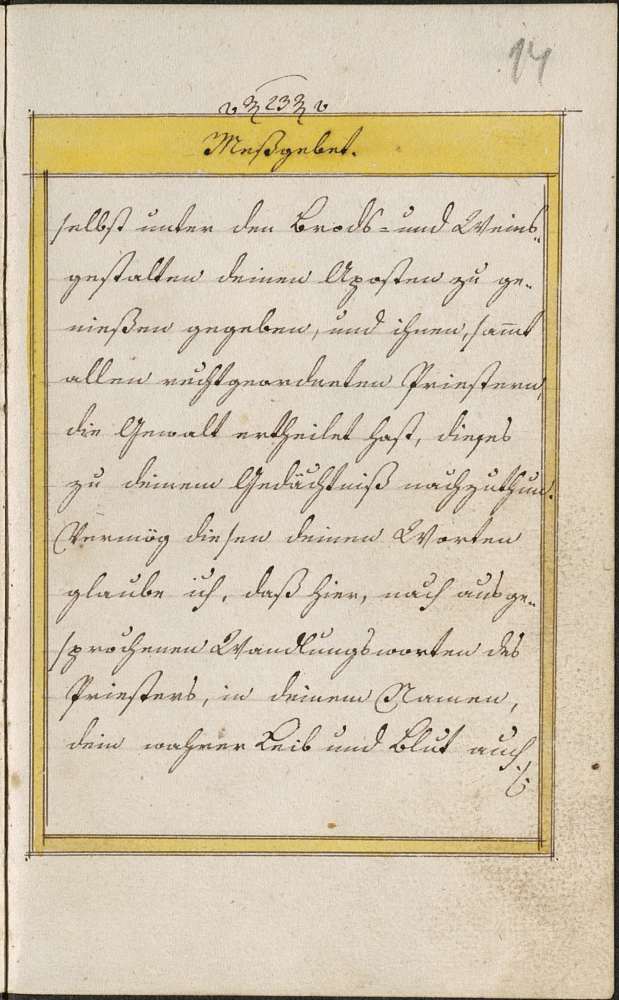 14
23
Meßgebet.
selbst unter den Brods- und Weins-
gestalten deinen Aposten zu ge-
nießen gegeben, und ihnen, sam̄t
allen rechtgeordneten Priestern,
die Gewalt ertheilet hast, dieses
zu deinem Gedächtniß nachzuthun.
Vermög diesen deinen Worten
glaube ich, daß hier, nach ausge-
sprochenen Wandlungsworten des
Priesters, in deinem Namen,
dein wahrer Leib und Blut auch